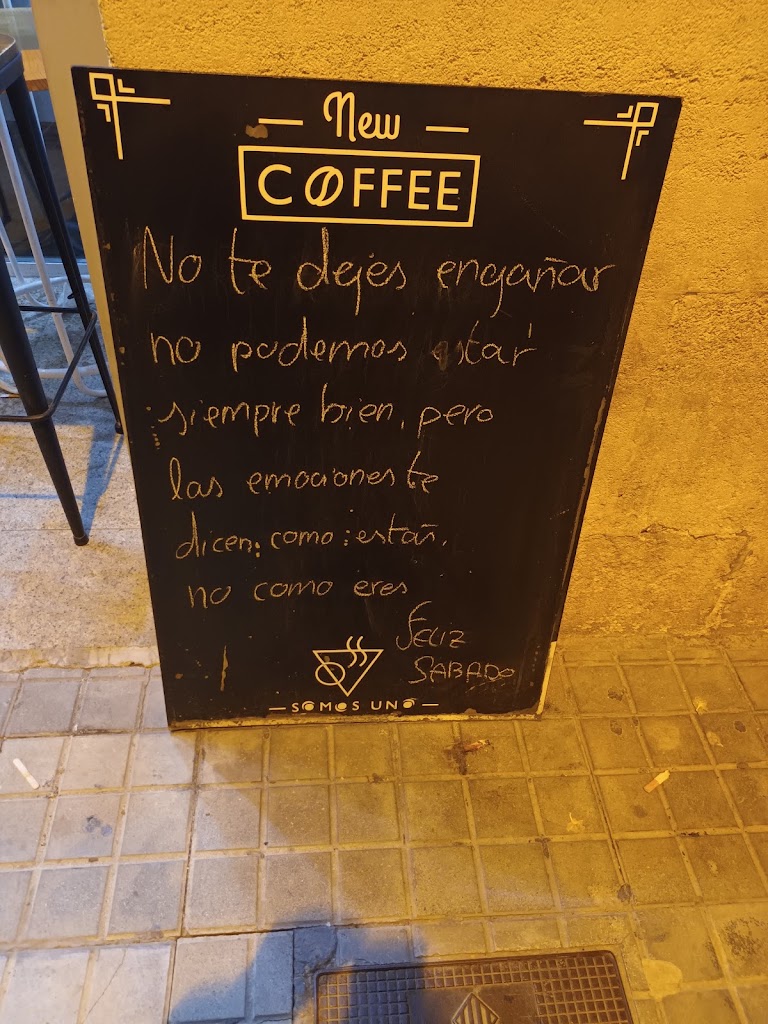 New
COFFEE
No te dejes engañar
no podemos estar
siempre bien, pero
las emociones te
dicen: como estas,
no como eres
FELIZ
SABADO
SOMOS UNO